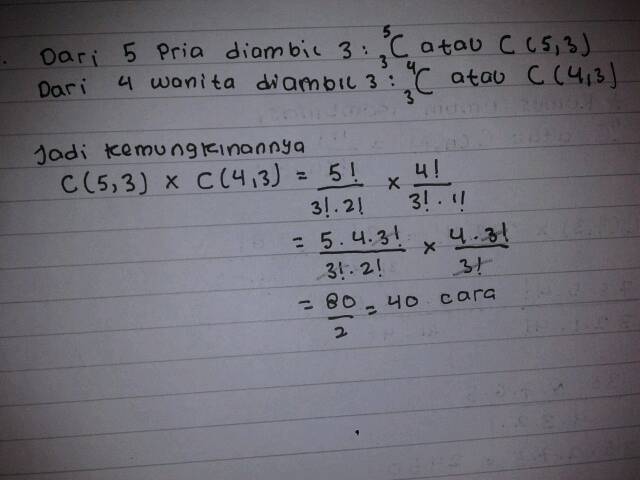 . Dari 5 Pria diambil 3 : ⁵₃C atau C(5,3)
Dari 4 wanita diambil 3 : ⁴₃C atau C(4,3)
Jadi kemungkinannya
C(5,3) x C(4,3) = 5!/3!.2! x 4!/3!.1!
= 5.4.3!/3!.2! x 4.3!/3!
= 80/2 = 40 cara